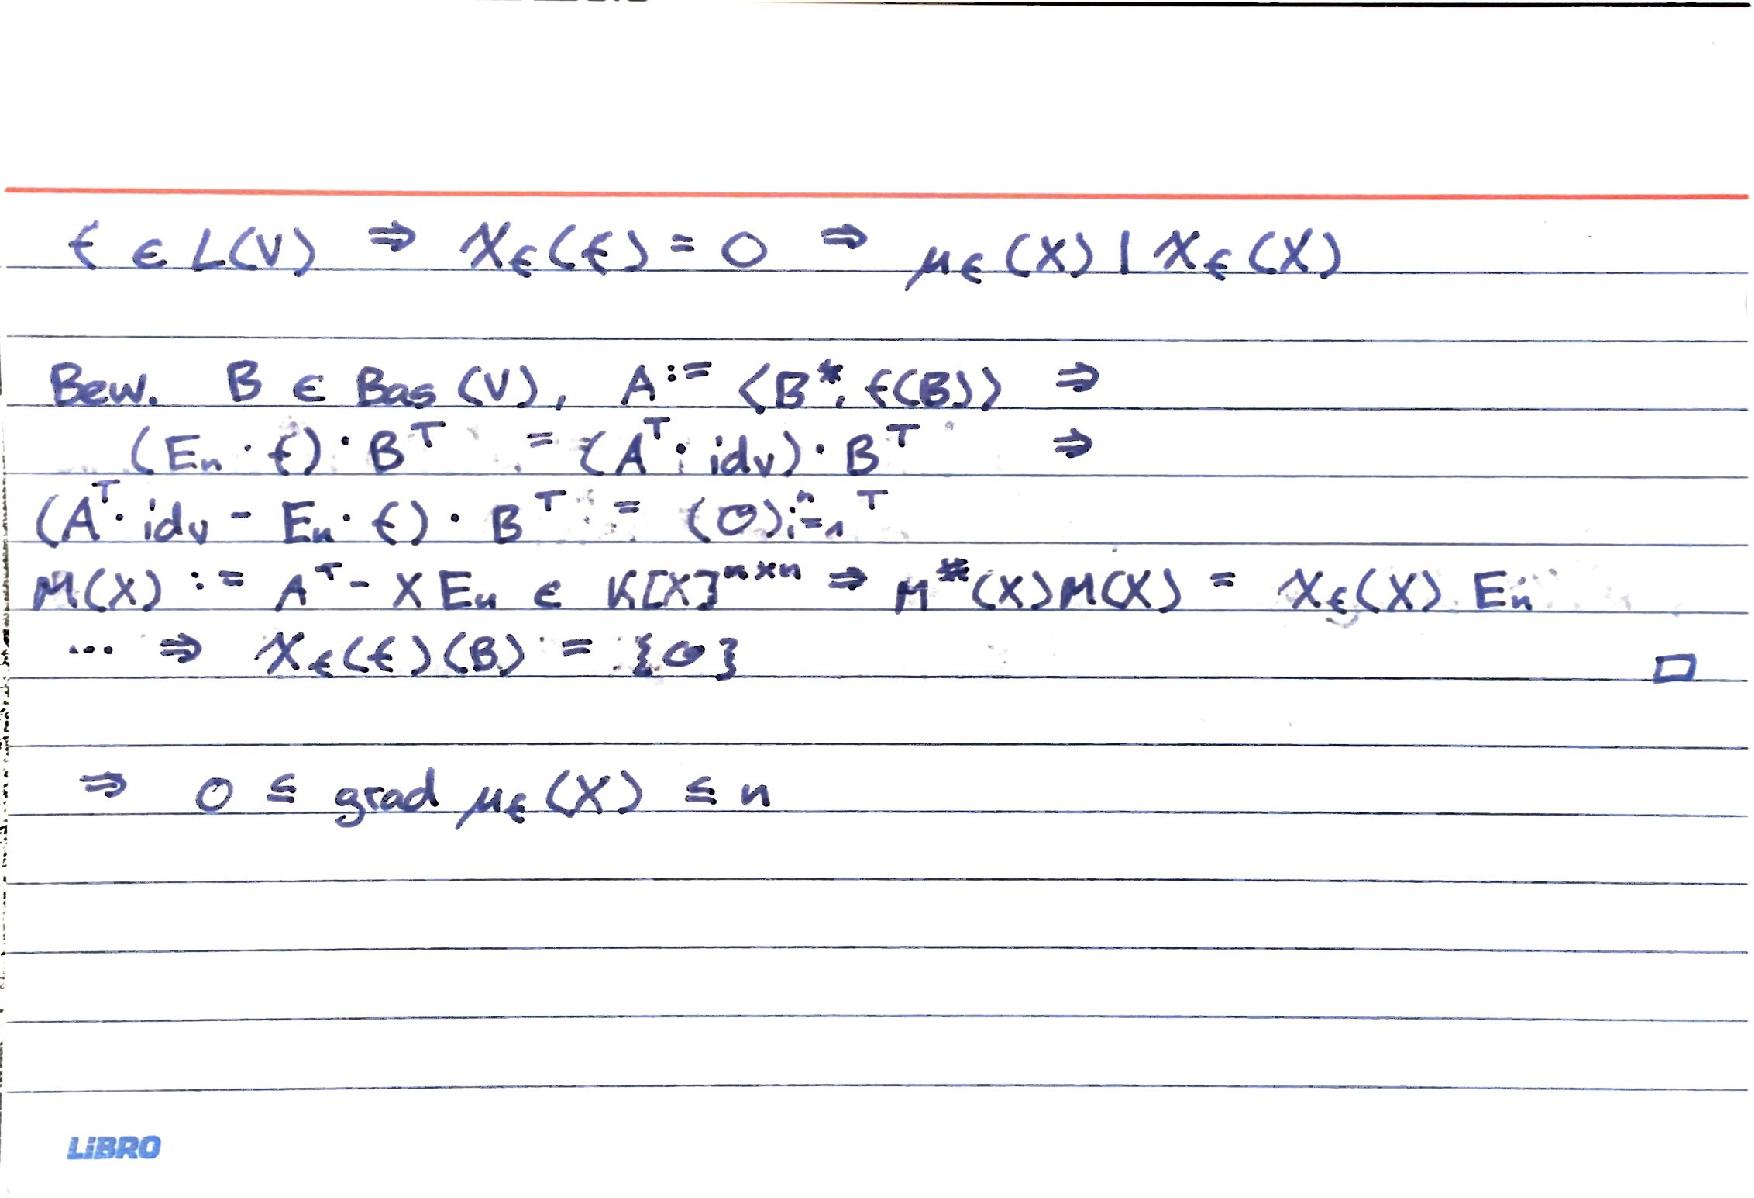 f ∈ L(V) ⇒ χf(f) = 0 ⇒ μf(X) | χf(X)
Bew. B ∈ Bas(V), A := ⟨B*, f(B)⟩ ⇒
(En · f) · B^T = (A^T · idV) · B^T ⇒
(A^T · idV - En · f) · B^T = (0)i=1^n T
M(X) := A^T - X En ∈ K[X]^n×n ⇒ M^#(X)M(X) = χf(X) En
... ⇒ χf(f)(B) = {0} □
⇒ 0 ≤ grad μf(X) ≤ n
LiBRO